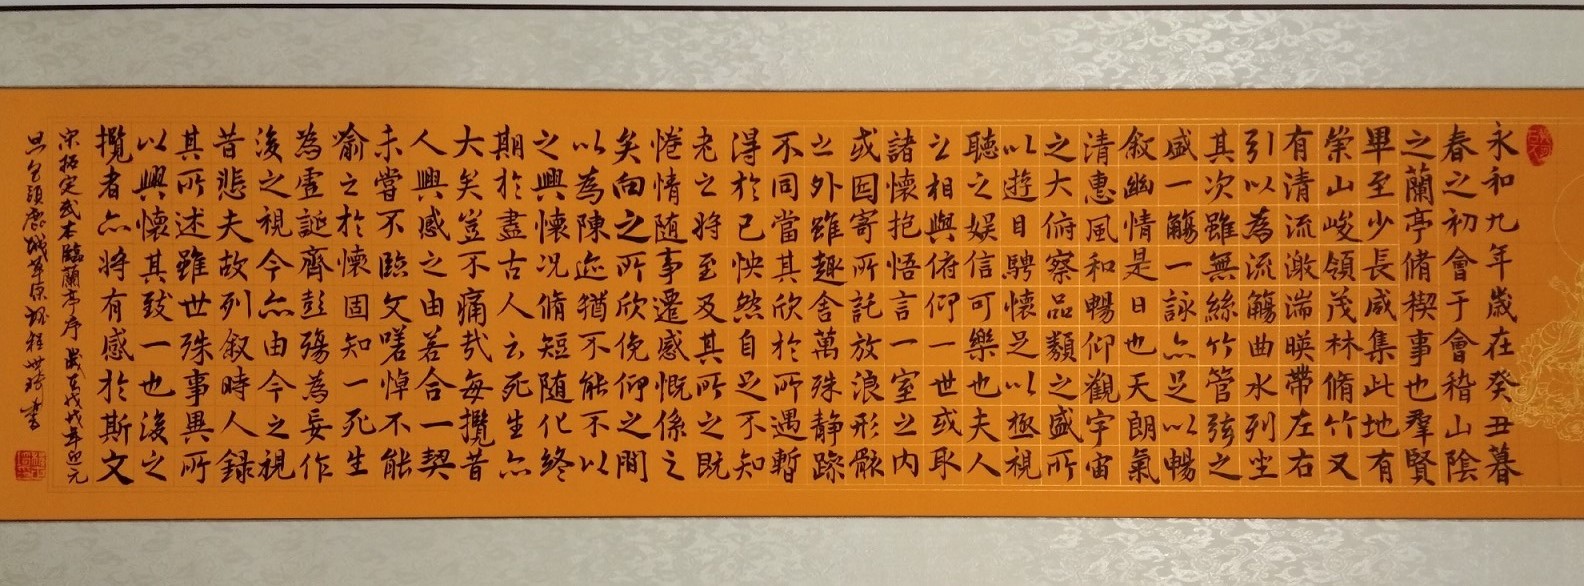 永和九年歲在癸丑暮
春之初會于會稽山陰
之蘭亭脩稧事也羣賢
畢至少長咸集此地有
崇山峻領茂林脩竹又
有清流激湍暎帶左右
引以為流觴曲水列坐
其次雖無絲竹管弦之
盛一觴一詠亦足以暢
敘幽情是日也天朗氣
清惠風和暢仰觀宇宙
之大俯察品類之盛所
以遊目騁懷足以極視
聽之娛信可樂也夫人
之相與俯仰一世或取
諸懷抱悟言一室之內
或因寄所託放浪形骸
之外雖趣舍萬殊静躁
不同當其欣於所遇暫
得於己怏然自足不知
老之將至及其所之既
惓情随事遷感慨係之
矣向之所欣俛仰之閒
以為陳迹猶不能不以
之興懷况脩短随化終
期於盡古人云死生亦
大矣豈不痛哉每攬昔
人興感之由若合一契
未嘗不臨文嗟悼不能
喻之於懷固知一死生
為虛誕齊彭殤為妄作
後之視今亦由今之視
昔悲夫故列叙時人録
其所述雖世殊事異所
以興懷其致一也後之
攬者亦將有感於斯文
宋拓定武本臨蘭亭序 歲在戊戌年迎元
旦包頭鹿城草原 程世琦書